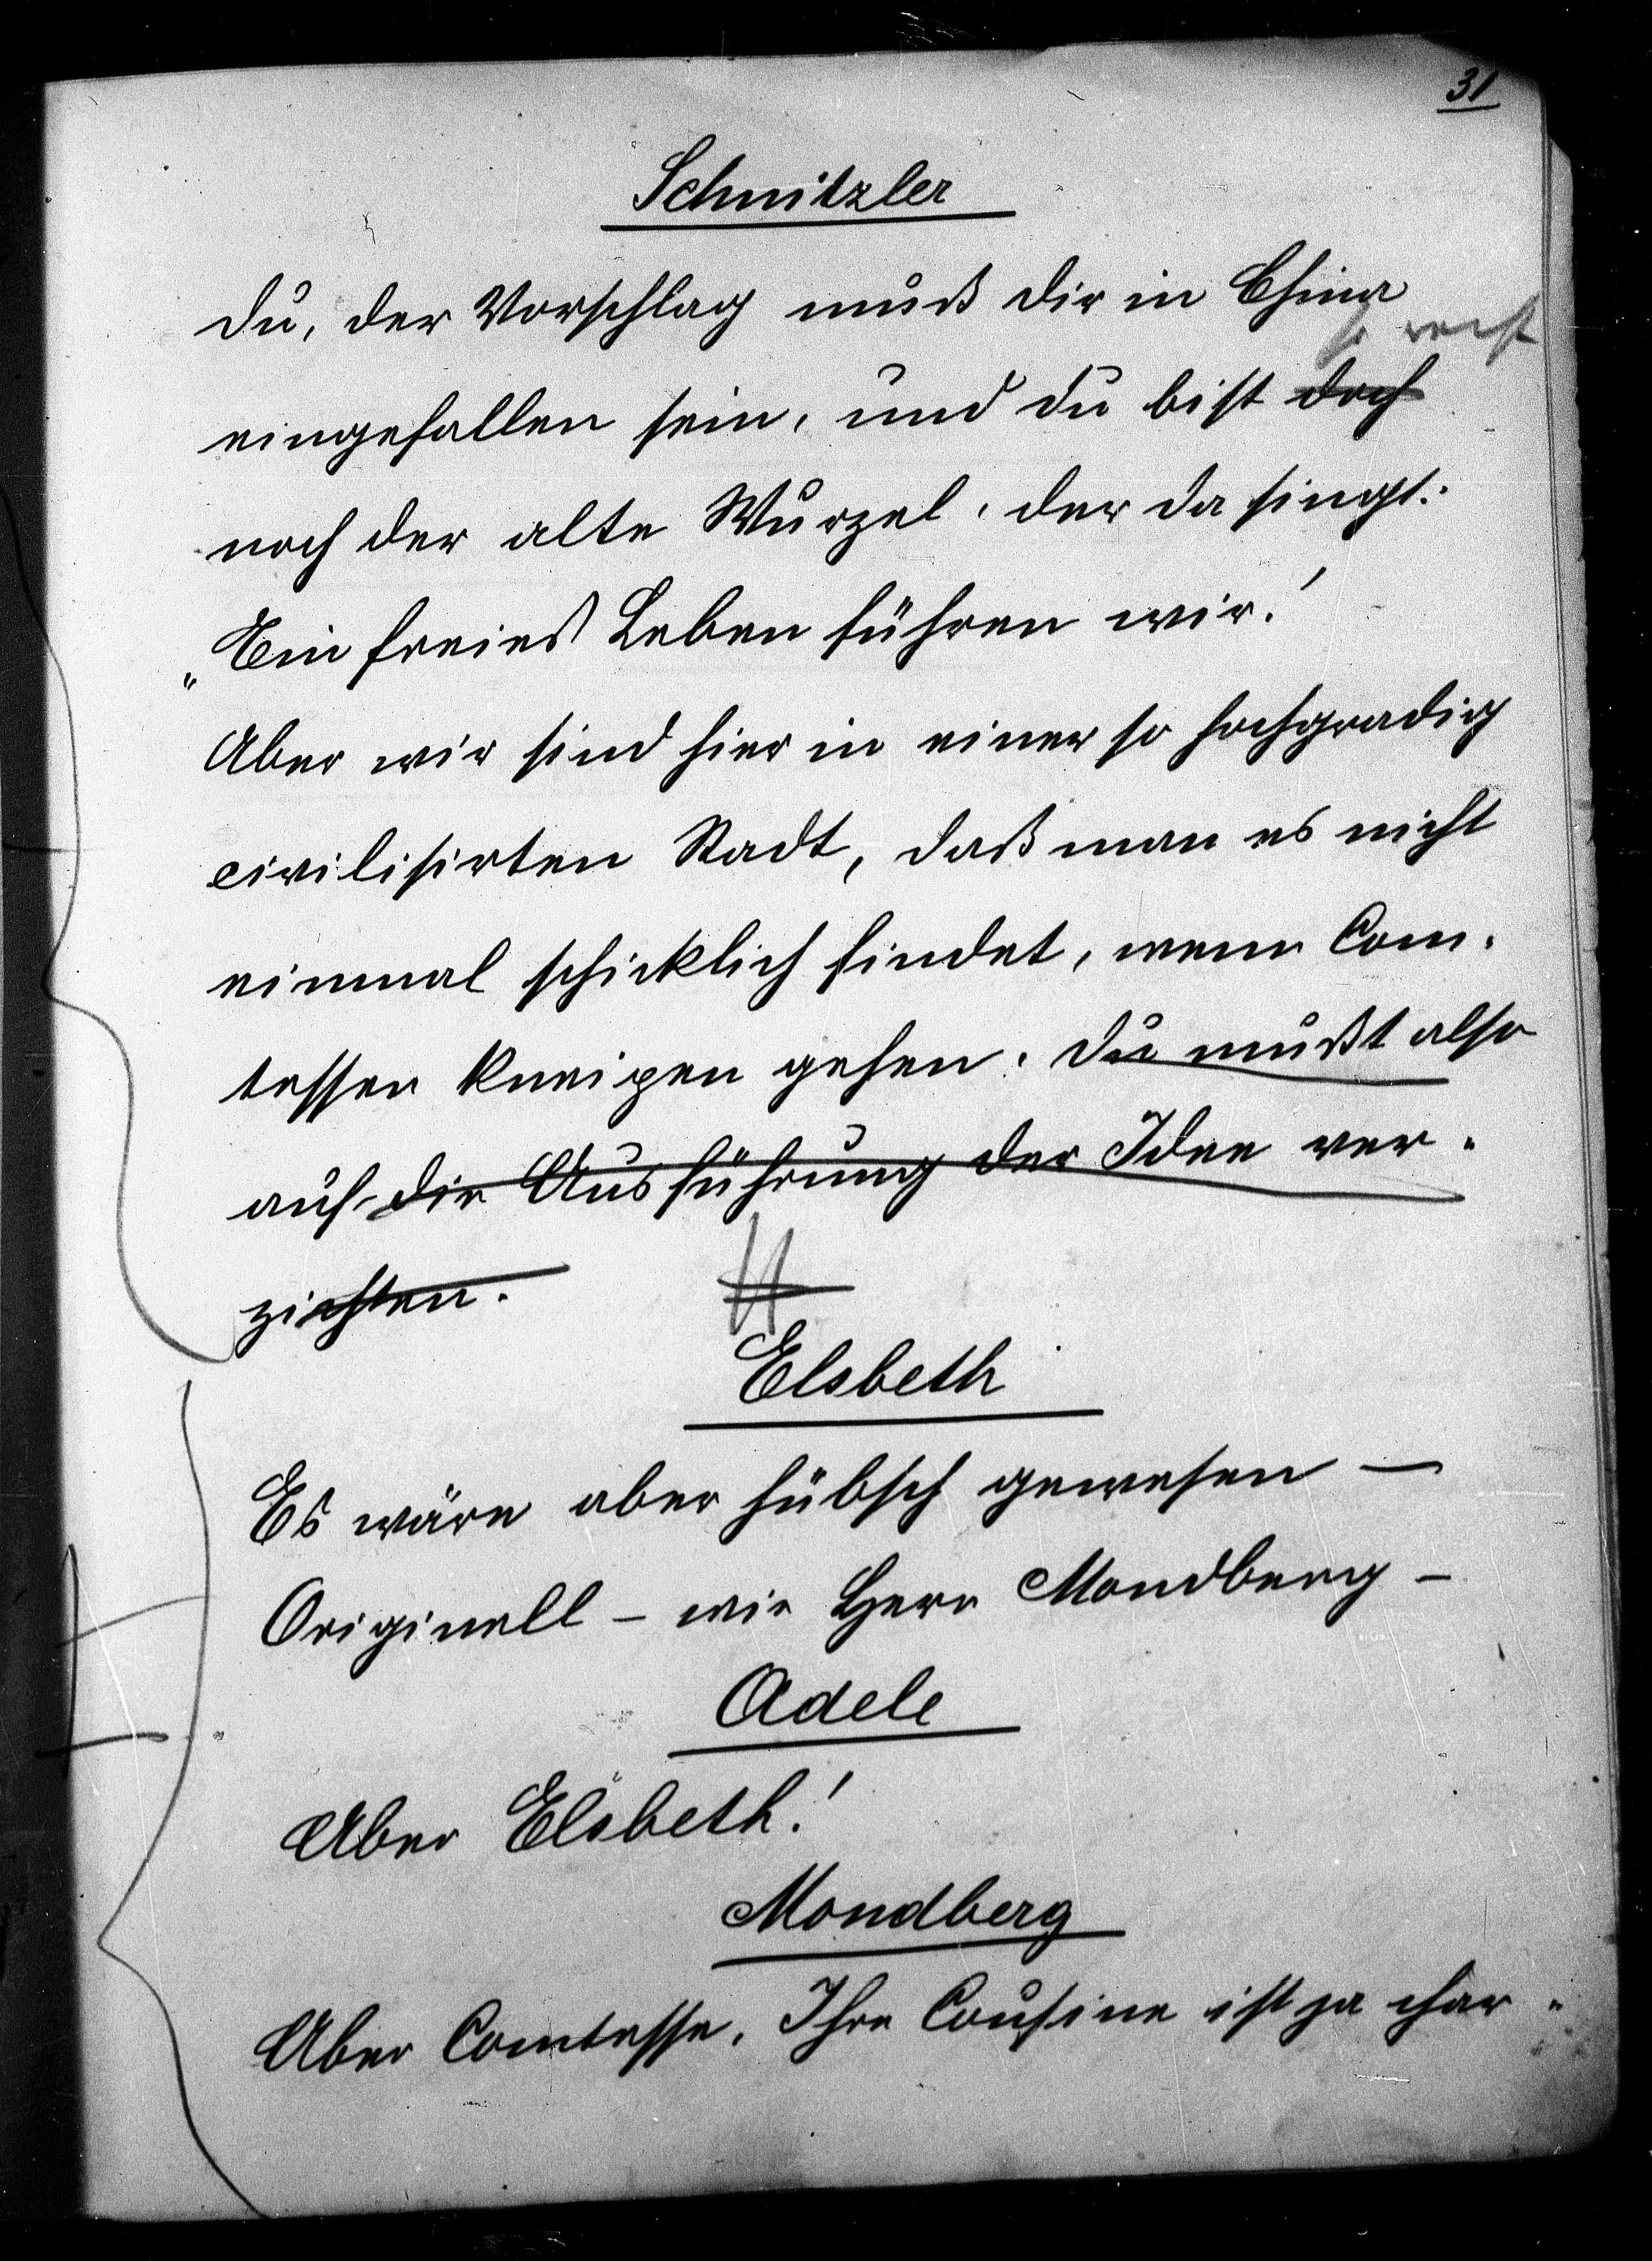 31
Schnitzler
Du, der Vorschlag muß dir in China
eingefallen sein, und du bist doch
noch der alte Wurzel, der da singt:
„Ein freies Leben führen wir!
Aber wir sind hier in einer so hochgradig
civilisirten Stadt, daß man es nicht
einmal schicklich findet, wenn Com-
tessen kneipen gehen. Du mußt also
auf die Ausführung der Idee ver-
zichten.
Elsbeth
Es wäre aber hübsch gewesen –
Originell – wie Herr Mondberg –
Adele
Aber Elsbeth!
Mondberg
Aber Comtesse, Ihre Cousine ist ja char-